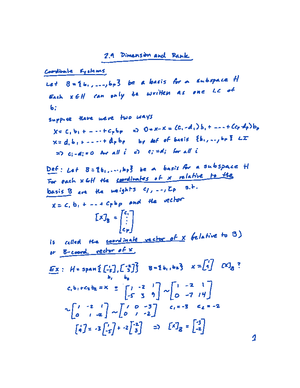 2.9 Dimension and Rank
Coordinate Systems
Let B = {b₁, ..., bp} be a basis for a subspace H
Each x∈H can only be written as one LC of
b:
Suppose there were two ways
x = c₁b₁ + --- + cpbp ⇒ 0 = x-x = (c₁-d₁)b₁ + --- + (cp-dp)bp
x = d₁b₁ + --- + dpbp by def of basis {b₁, ..., bp} LI
⇒ ci-di = 0 for all i ⇒ ci = di for all i
Def: Let B = {b₁, ..., bp} be a basis for a subspace H
For each x∈H the coordinates of x relative to the
basis B are the weights c₁, ..., cp s.t.
x = c₁b₁ + --- + cpbp and the vector
[x]B = [c₁ ⋮ cp]
is called the coordinate vector of x (relative to B)
or B-coord. vector of x.
Ex: H = span{ } B = {b₁, b₂} x = [x]B?
b₁ b₂
c₁b₁ + c₂b₂ = x [1 -2 1; -5 3 9] ~ [1 -2 1; 0 -7 14]
~ [1 -2 1; 0 1 -2] ~ [1 0 -3; 0 1 -2] c₁ = -3 c₂ = -2
[1; 9] = -3[1; -5] + -2[-2; 3] ⇒ [x]B = [-3; -2]